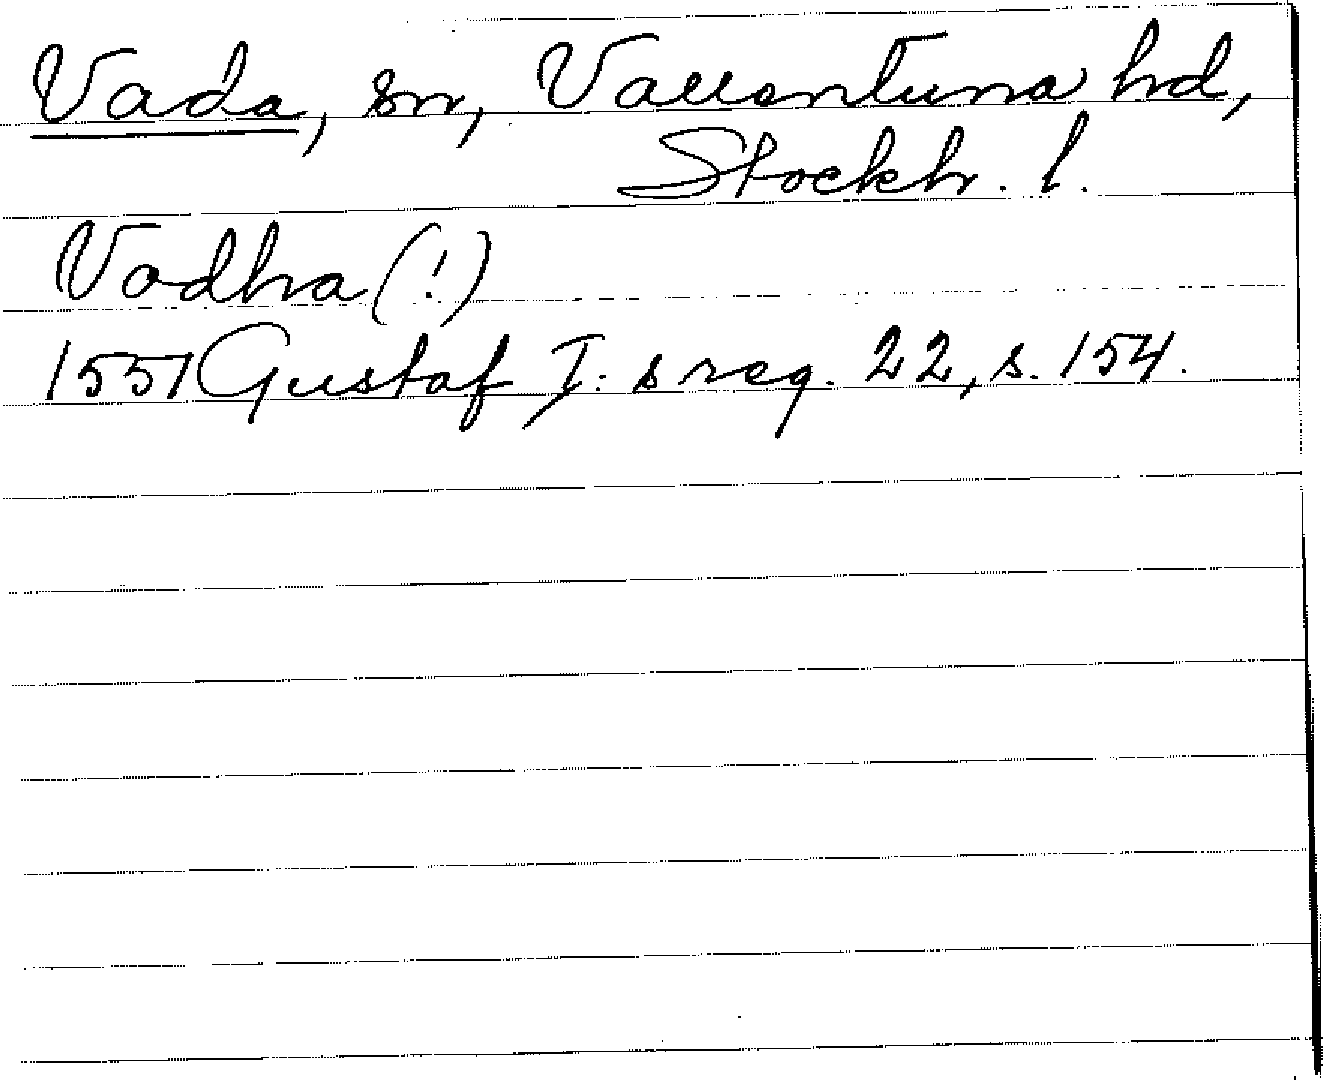 Vada, sn, Vallentuna hd,
Stockh. l.
Vodha (!)
1551 Gustaf I:s reg. 22, s. 154.